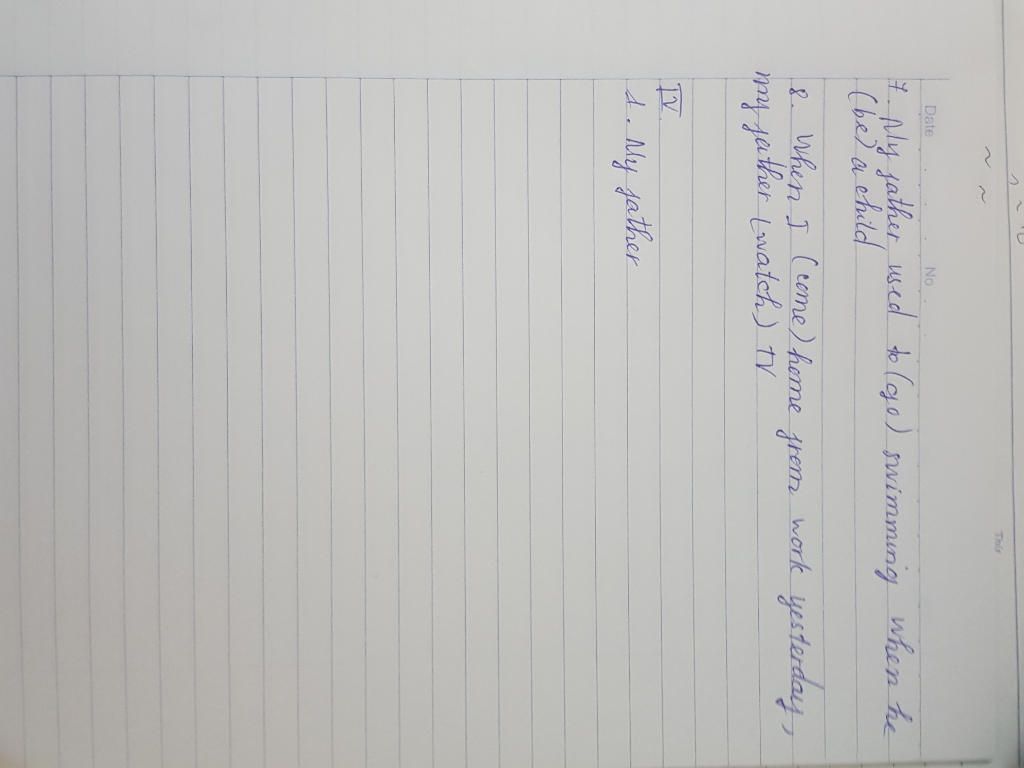 Date No
7. My father used to (go) swimming when he
(be) a child
8. When I (come) home from work yesterday,
my father (watch) TV
IV
1. My father